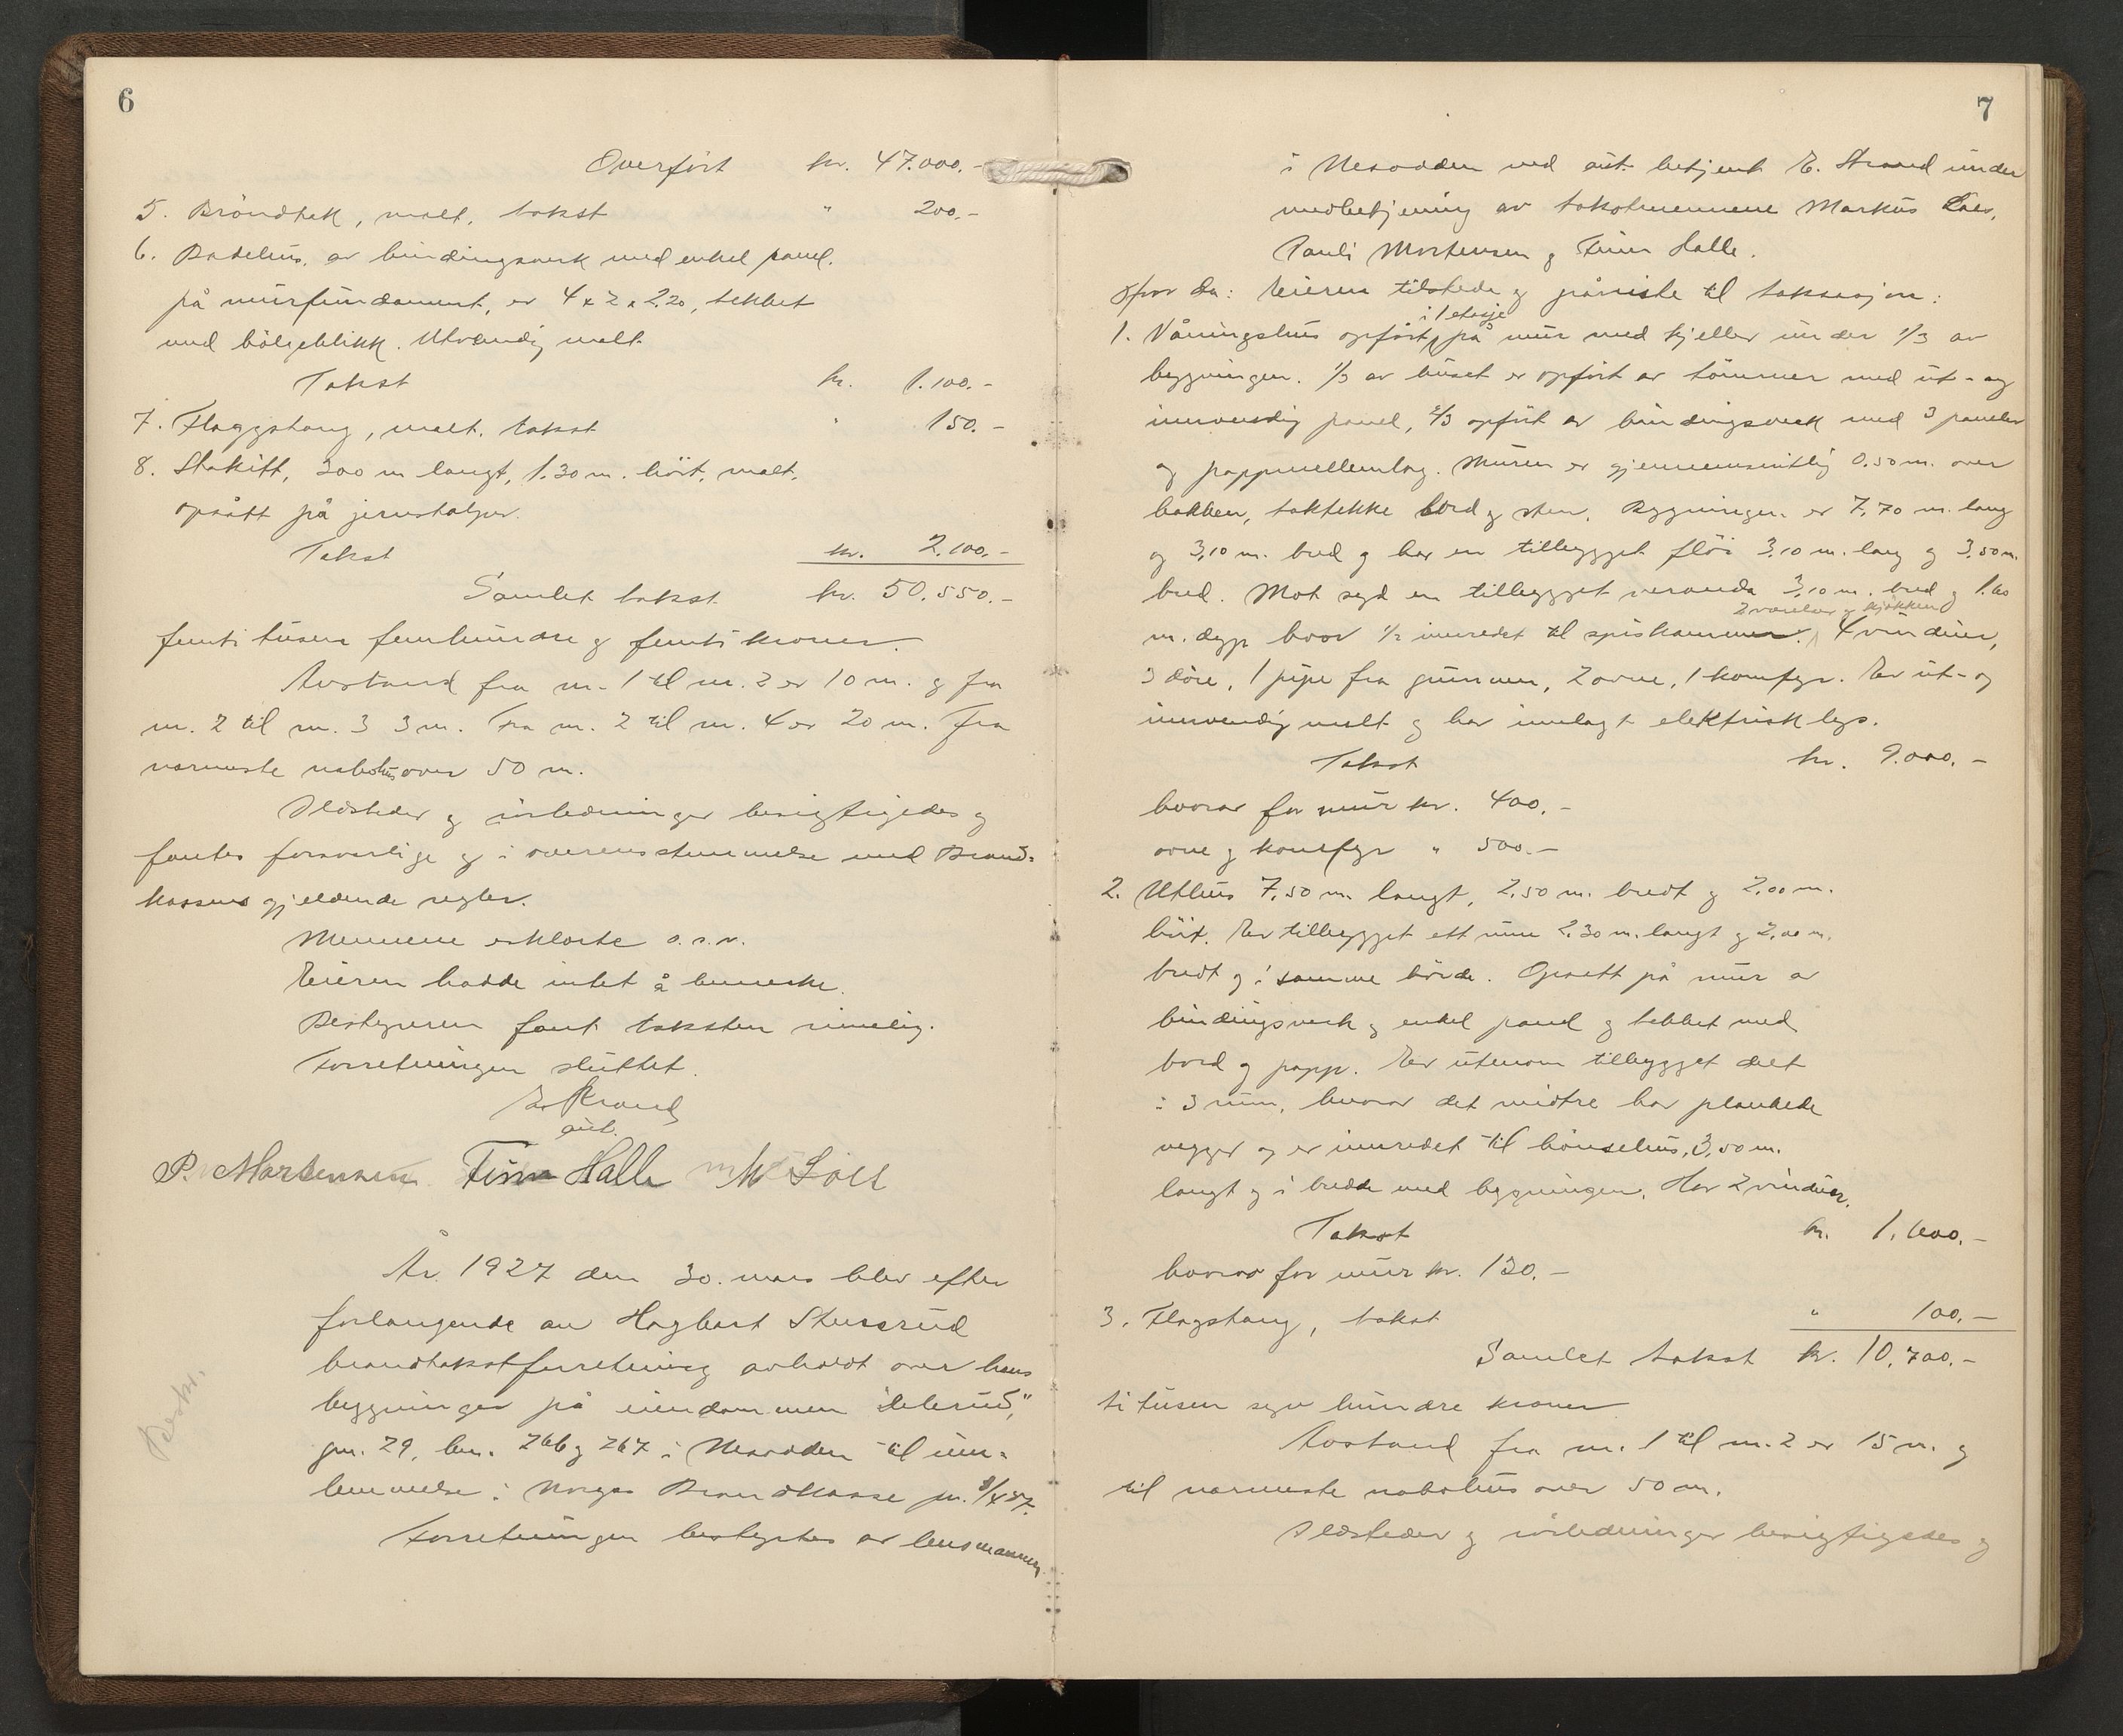 6
Overført kr. 47.000.-
5. Brøndhek, malt, takst " 200.-
6. Badehus, av bindingsverk med enkel panel.
på murfundament, er 4 x 2 x 2,20, tekket
med bølgeblikk. Utvendig malt.
Takst kr. 1.100.-
7. Flaggstang, malt, takst " 150.-
8. Stakitt, 300 m langt, 1.30 m. høit, malt,
opsatt på jernstolper.
Takst kr. 2.100.-
Samlet takst kr. 50.550.-
femti tusen femhundre og femti kroner.
Avstand fra nr. 1 til nr. 2 er 10 m. og fra
nr. 2 til nr. 3 3 m. Fra nr. 2 til nr. 4 er 20 m. Fra
nærmeste nabohus over 50 m.
Ildsteder og rørledninger besigtigedes og
fantes forsvarlige og i overensstemmelse med Brand-
kassens gjeldende regler.
Mennene erklærte o.s.v.
Eieren hadde intet å bemerke.
Bestyreren fant taksten rimelig.
Forretningen sluttet.
E. Strand
aut.
P. Mortensen Finn Halle M Løes
År 1927 den 30. mars blev efter
forlangende av Hagbart Stussrud
brandtakstforretning avholdt over hans
bygninger på eiendommen "Elerud",
gnr. 29, bnr. 266 og 267 i Nesodden til inn-
lemmelse i Norges Brandkasse pr. 8/4 27.
Forretningen bestyrtes av lensmannen
Beskr.
7
i Nesodden ved aut. betjent E. Strand under
medbetjening av takstmennene Markus Løes,
Pauli Mortensen og Finn Halle.
Hvor da: Eieren tilstede og påviste til taksasjon:
i 1 etasje
1. Våningshus opført på mur med kjeller under 1/3 av
bygningen. 1/3 av huset er opført av tømmer med ut- og
innvendig panel, 2/3 opført av bindingsverk med 3 paneler
og pappmellemlag. Muren er gjennemsnitlig 0.50 m. over
bakken, taktekke bord og sten. Bygningen er 7,70 m. lang
og 3,10 m. bred og har en tilbygget fløi 3,10 m. lang og 3,50 m.
bred. Mot syd en tilbygget veranda 3,10 m. bred og 1.60
2 værelser og kjøkken
m. dyp hvor 1/2 innredet til spiskammer. 4 vinduer,
3 døre, 1 pipe fra grunnen, 2 ovne, 1 komfyr. Er ut- og
innvendig malt og har innlagt elektrisk lys.
Takst kr. 9.000.-
hvorav for mur kr. 400.-
ovne og komfyr " 500.-
2. Uthus 7,50 m. langt, 2,50 m. bredt og 2,00 m.
høit. Er tilbygget ett rum 2.30 m. langt og 2,00 m.
bredt og i samme høide. Opsatt på mur av
bindingsverk og enkel panel og tekket med
bord og papp. Er utenom tilbygget delt
i 3 rum, hvorav det midtre har plankede
vegger og er innredet til hønsehus, 3,50 m.
langt og i bredde med bygningen. Har 2 vinduer.
Takst kr. 1.600.-
hvorav for mur kr. 130.-
3. Flagstang, takst " 100.-
Samlet takst kr. 10.700.-
ti tusen syv hundre kroner
Avstand fra nr. 1 til nr. 2 er 15 m. og
til nærmeste nabohus over 50 m.
Ildsteder og rørledninger besigtigedes og